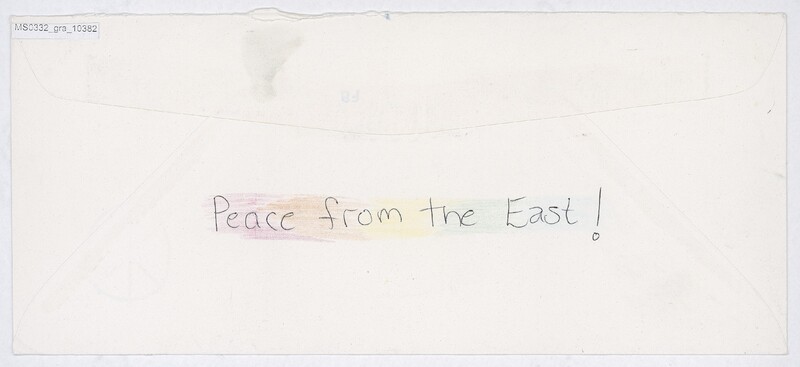 MS0332_gra_10382
Peace from the East!